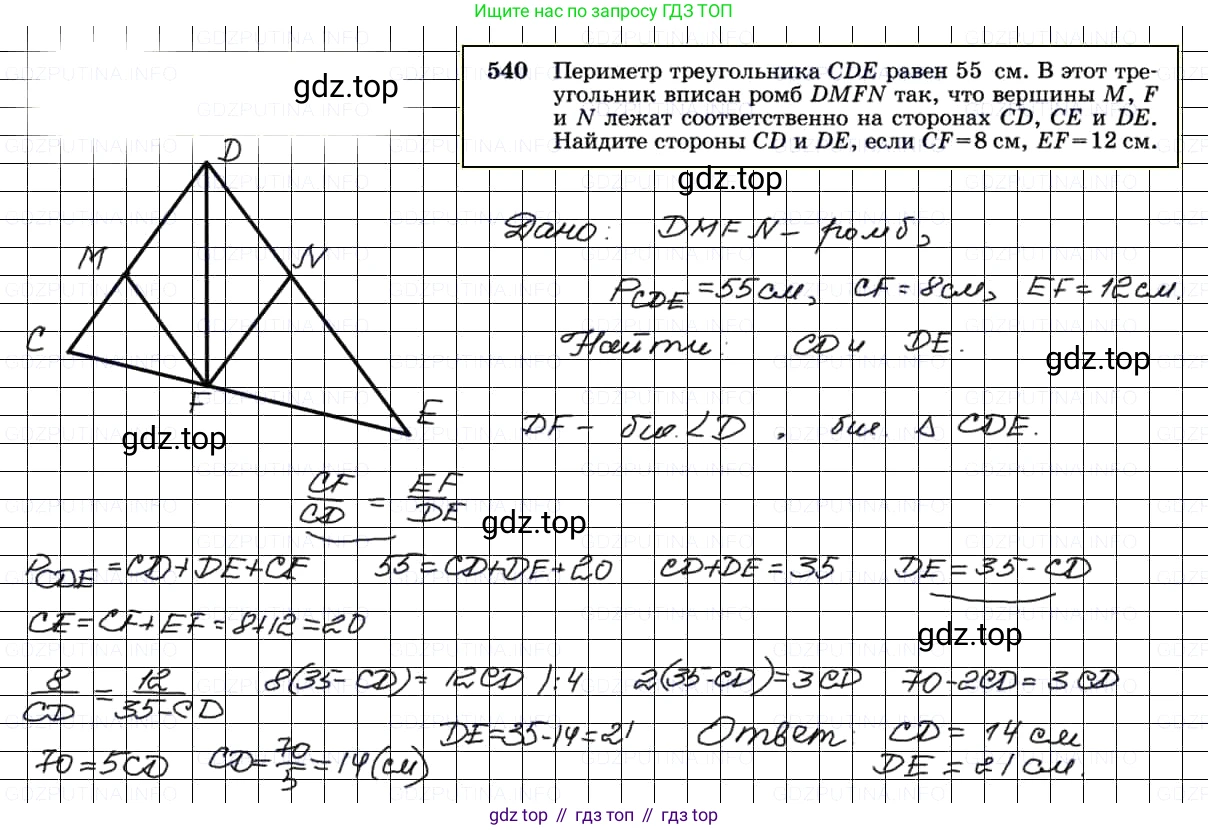 Ищите нас по запросу ГДЗ ТОП
540 Периметр треугольника CDE равен 55 см. В этот тре-
угольник вписан ромб DMFN так, что вершины M, F
и N лежат соответственно на сторонах CD, CE и DE.
Найдите стороны CD и DE, если CF=8 см, EF=12 см.
gdz.top
gdz.top
D
M
N
C
F
E
gdz.top
Дано: DMFN – ромб,
P_CDE = 55 см, CF = 8 см, EF = 12 см.
Найти: CD и DE.
gdz.top
DF – бис. ∠D, бис. △ CDE.
CF/CD = EF/DE
gdz.top
P_CDE = CD+DE+CE 55 = CD+DE+20 CD+DE = 35 DE = 35 - CD
CE = CF+EF = 8+12 = 20
gdz.top
8/CD = 12/35-CD 8(35-CD) = 12CD |:4 2(35-CD) = 3CD 70-2CD = 3CD
70 = 5CD CD = 70/5 = 14 (см) DE = 35-14 = 21 Ответ: CD = 14 см
DE = 21 см.
gdz top // гдз топ // gdz top